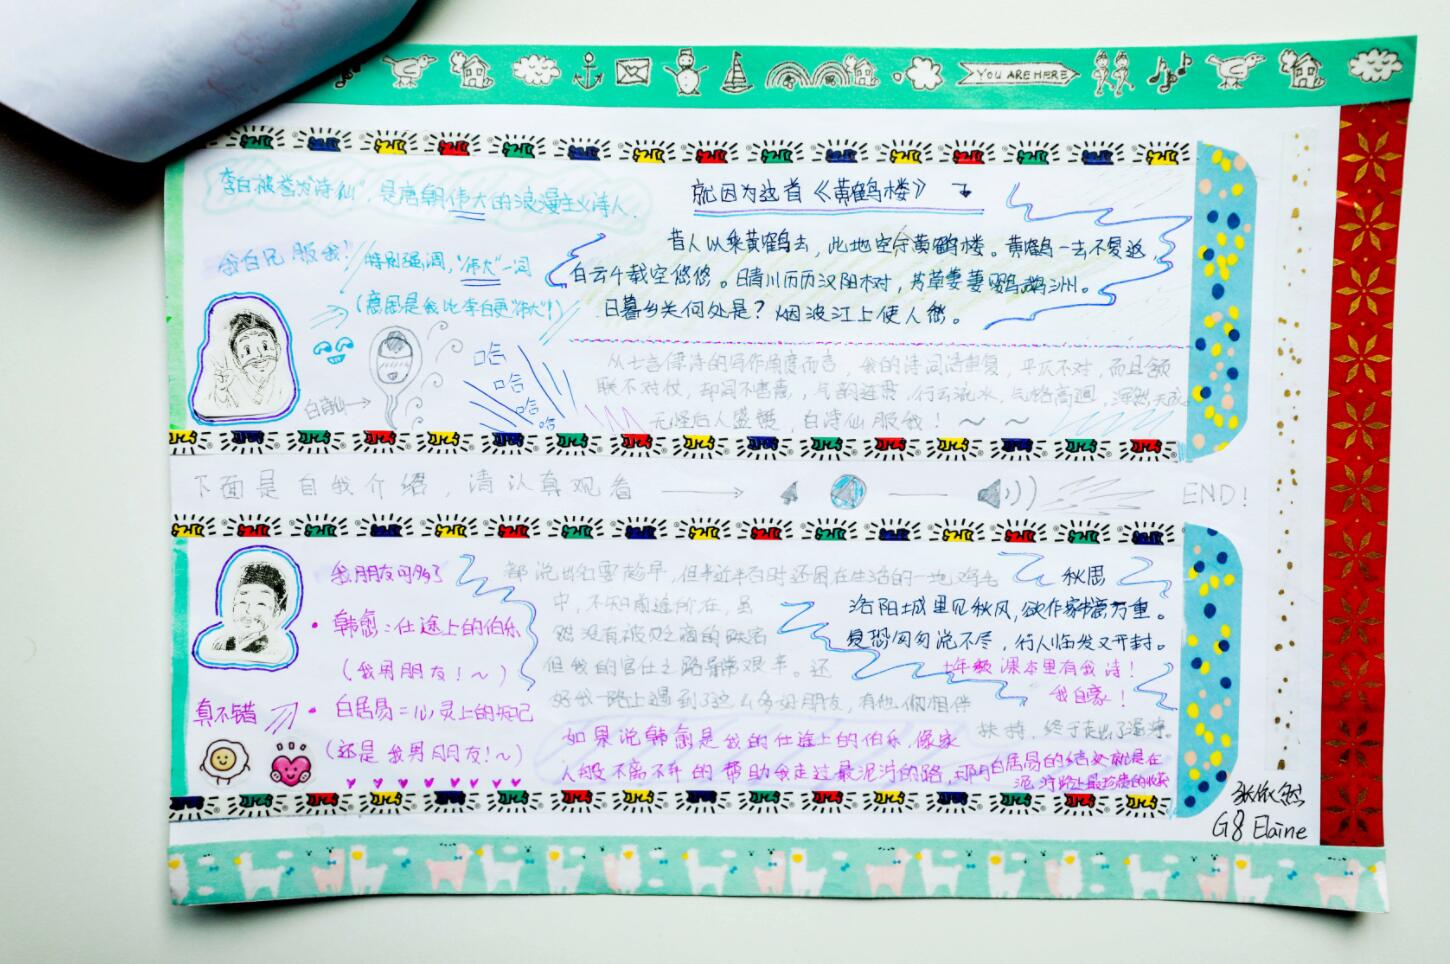 YOU ARE HERE
李白被誉为"诗仙",是唐朝伟大的浪漫主义诗人.
就因为这首《黄鹤楼》
李白兄服我!
特别强调,"伟大"一词
(意思是我比李白更"伟大"!)
白诗仙
哈
哈
哈
哈
昔人以乘黄鹤去,此地空余黄鹤楼。黄鹤一去不复返,
白云千载空悠悠。晴川历历汉阳树,芳草萋萋鹦鹉洲。
日暮乡关何处是?烟波江上使人愁。
从七言律诗的写作角度而言,我的诗词语重复,平仄不对,而且颔
联不对仗,却词不害意,气韵连贯,行云流水,气格高迥,浑然天成
无怪后人盛赞,白诗仙服我!~~
下面是自我介绍,请认真观看
END!
我朋友可多了
韩愈:仕途上的伯乐
(我男朋友!~)
真不错
白居易=心灵上的知己
(还是我男朋友!~)
都说出名要趁早,但我近半百时还困在生活的一地鸡毛
中,不知前途所在,虽
然没有被贬之商的
但我的官仕之路异常艰辛。还
好我一路上遇到了这么多好朋友,有他们相伴
扶持,终于走出了泥泞。
如果说韩愈是我的仕途上的伯乐,像家
人般不离不弃的帮助我走过最泥泞的路,那白居易的
就是在
泥泞路上最
秋思
洛阳城里见秋风,欲作家书意万重。
复恐匆匆说不尽,行人临发又开封。
七年级课本里有我诗!
我自豪!
张依然
G8 Elaine